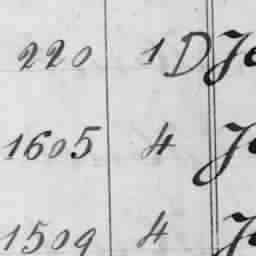 220 1D Jo
1605 4 Jo
1509 4 Jo